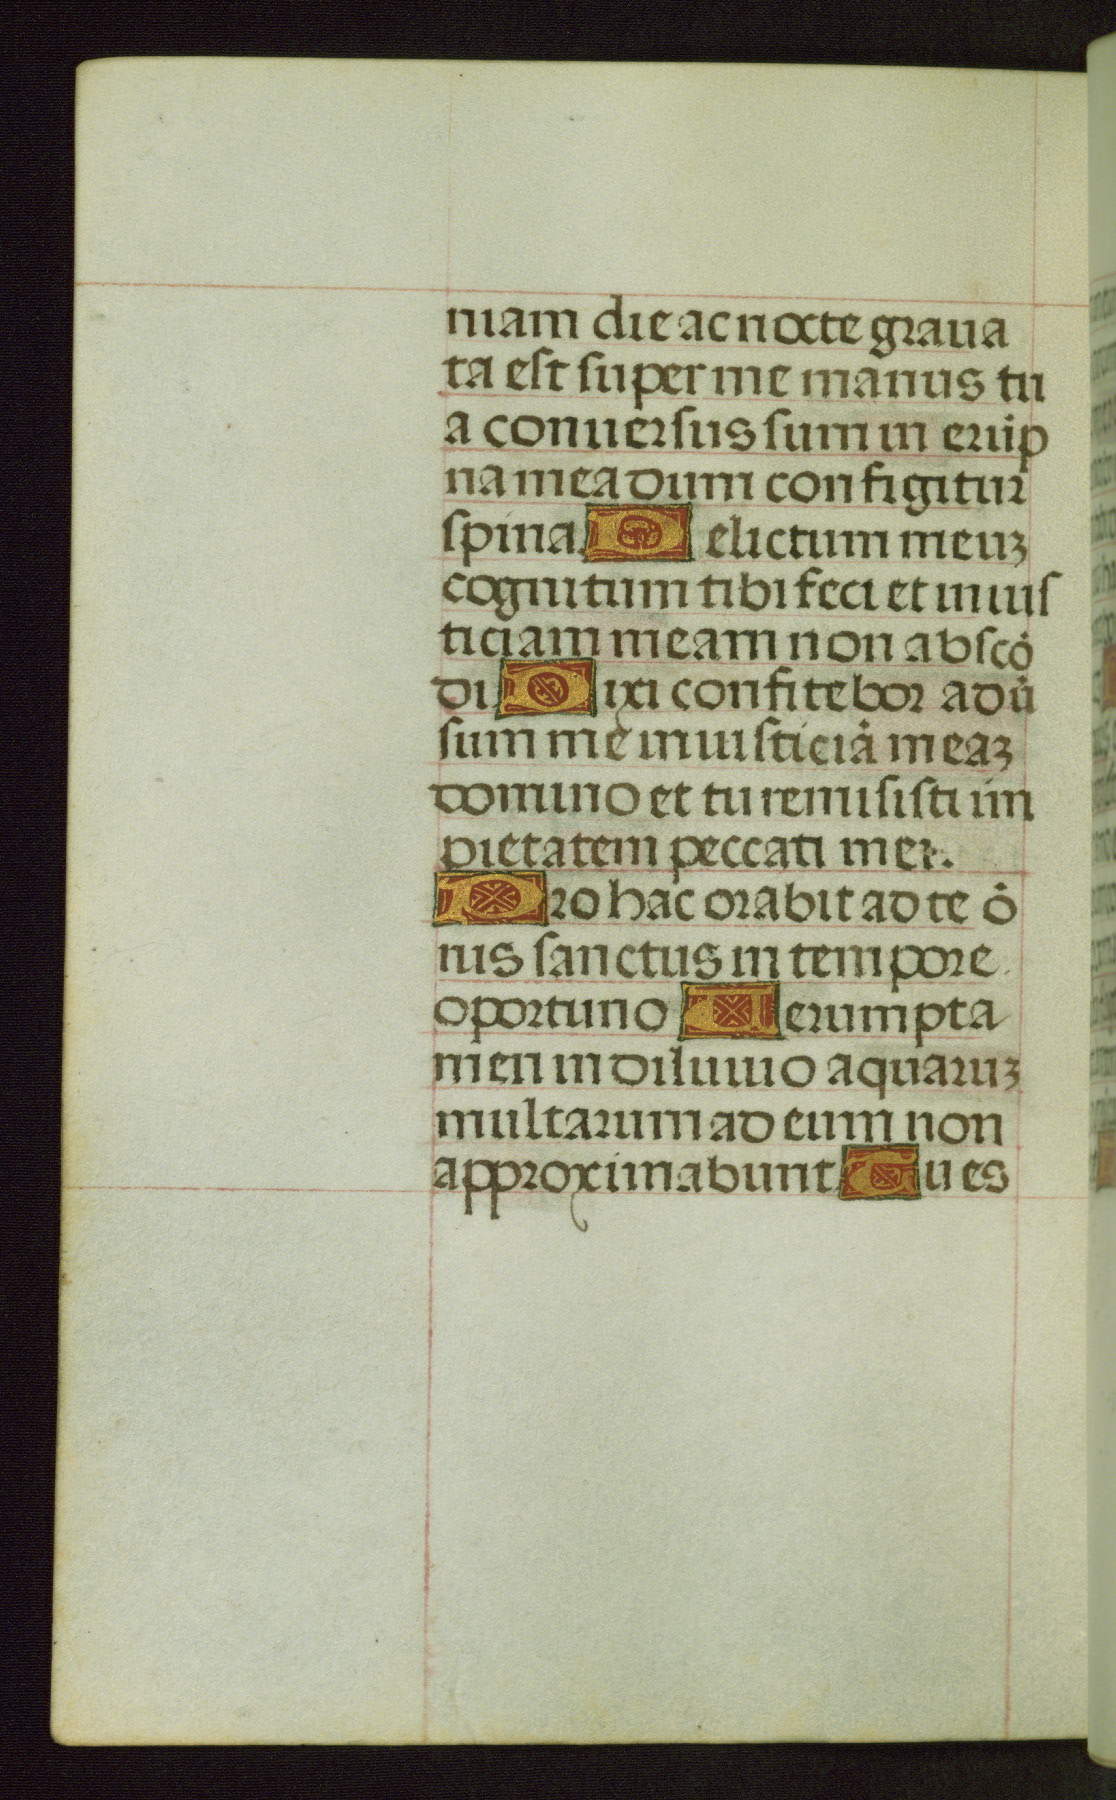 niam die ac nocte graua
ta est super me manus tu
a conuersus sum in erūp
na mea dum configitur
spina. Delictum meuz
cognitum tibi feci et iniuis
ticiam meam non abscō
di. Dixi confitebor adū
sum me iniusticiā meaz
domino et tu remisisti im
pietatem peccati mei.
Pro hac orabit ad te ō
nis sanctus in tempore
oportuno Uerumpta
men in diluuio aquaruz
multarum ad eum non
approximabunt. Tu es